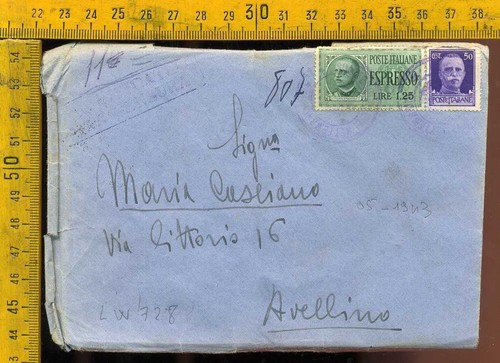 22 23 24 25 26 27 28 29 30 31 32 33 34 35 36 37 38
54 53 52 51 50 49 48 47 46 45 44 43
807
POSTE ITALIANE
ESPRESSO
LIRE 1.25
50
POSTE ITALIANE
Signa
Maria Casciano
Via Littorio 16
05-1943
LW728
Avellino